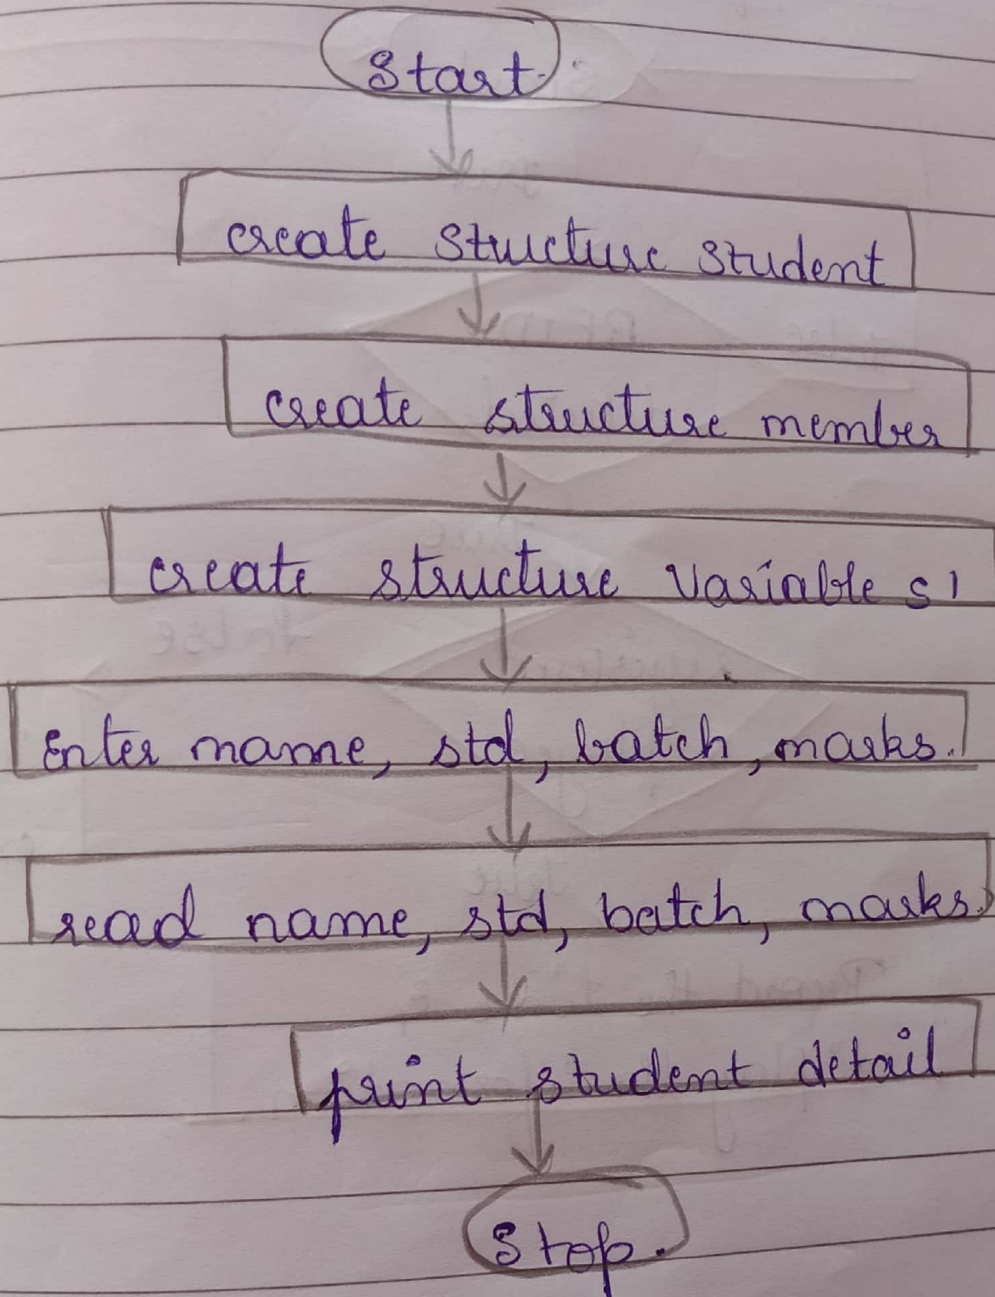 Start.
create structure student
create structure member
create structure variable s1
Enter name, std, batch, marks.
read name, std, batch, marks.
print student detail
Stop.